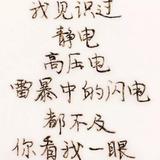 我见识过
静电
高压电
雷暴中的闪电
都不及
你看我一眼